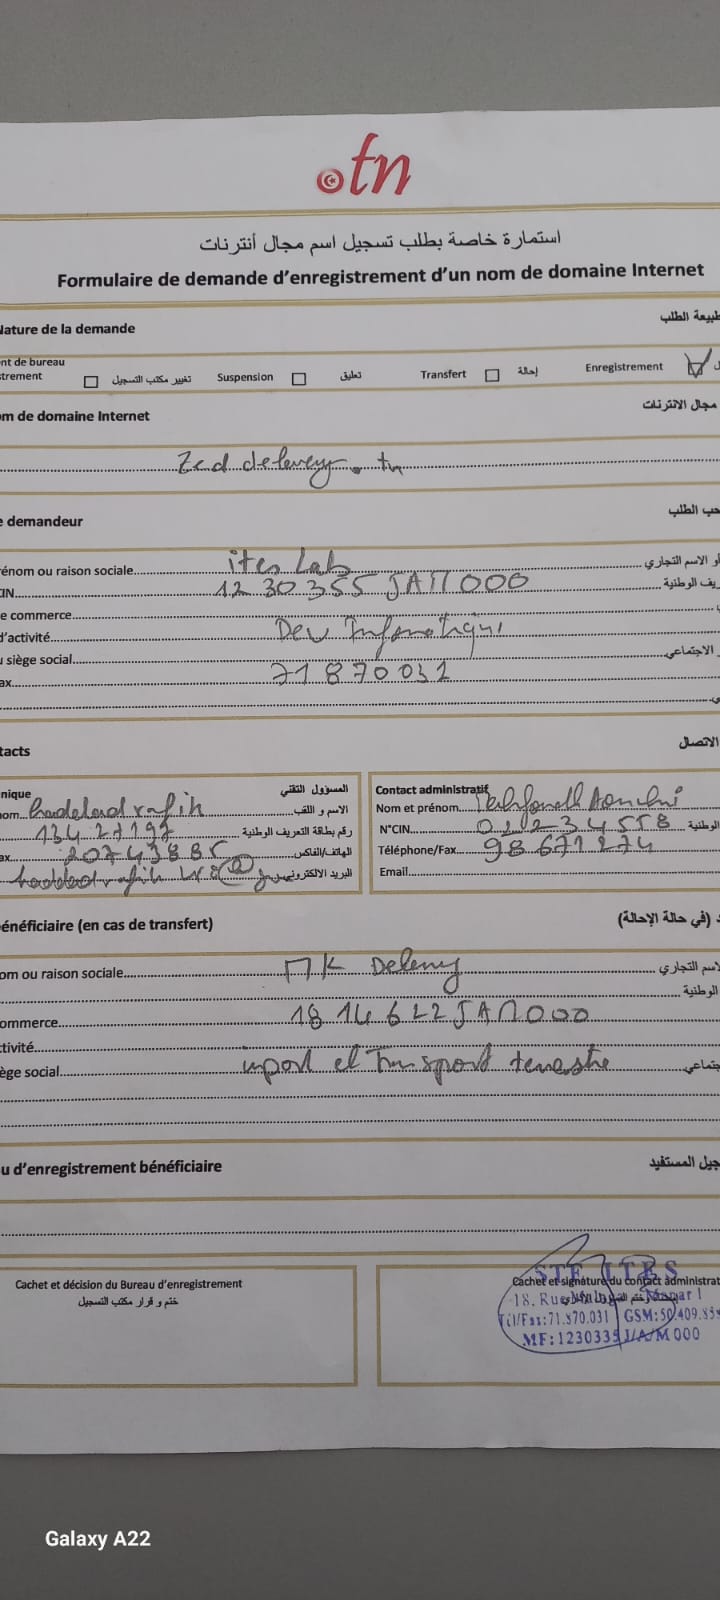 .tn
استمارة خاصة بطلب تسجيل اسم مجال أنترنات
Formulaire de demande d'enregistrement d'un nom de domaine Internet
Nature de la demande طبيعة الطلب
nt de bureau
trement تغيير مكتب التسجيل Suspension تعليق Transfert إحالة Enregistrement
om de domaine Internet مجال الانترنات
Zed delevery.tn
e demandeur حب الطلب
rénom ou raison sociale ites Lab و الاسم التجاري
IN 1230355JAM000 ريف الوطنية
e commerce
d'activité Dev Informatique
u siège social الاجتماعي
ax 71870031
tacts الاتصال
nique المسؤول التقني
nom haddad rafik الاسم و اللقب
13427197 رقم بطاقة التعريف الوطنية
ax الهاتف/الفاكس
haddad rafik البريد الالكتروني
Contact administratif
Nom et prénom
N°CIN 02234558 الوطنية
Téléphone/Fax 98671274
Email
énéficiaire (en cas de transfert) (في حالة الإحالة)
om ou raison sociale MK Delevery لاسم التجاري
الوطنية
ommerce 1814622JAM000
tivité
ège social import et Transport terrestre جتماعي
u d'enregistrement bénéficiaire جيل المستفيد
Cachet et décision du Bureau d'enregistrement
ختم و قرار مكتب التسجيل
Cachet et signature du contact administrat
STE ITES
18, Rue Manar I
Tél/Fax:71.870.031 GSM:50.409.85
MF:1230335 J/A/M 000
Galaxy A22